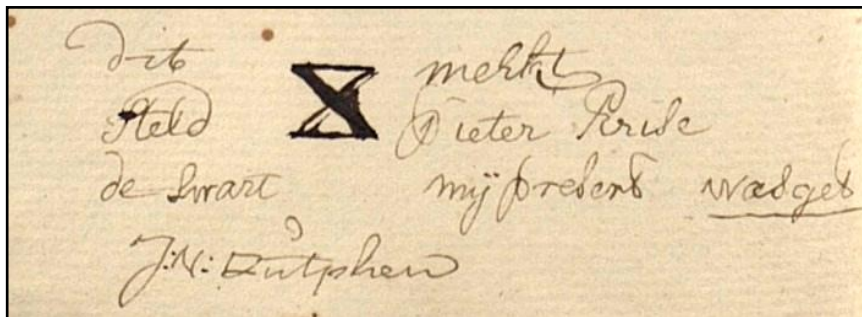 dit merkt
steld Pieter Krise
de Swart mÿ present
J: N: Zutphen